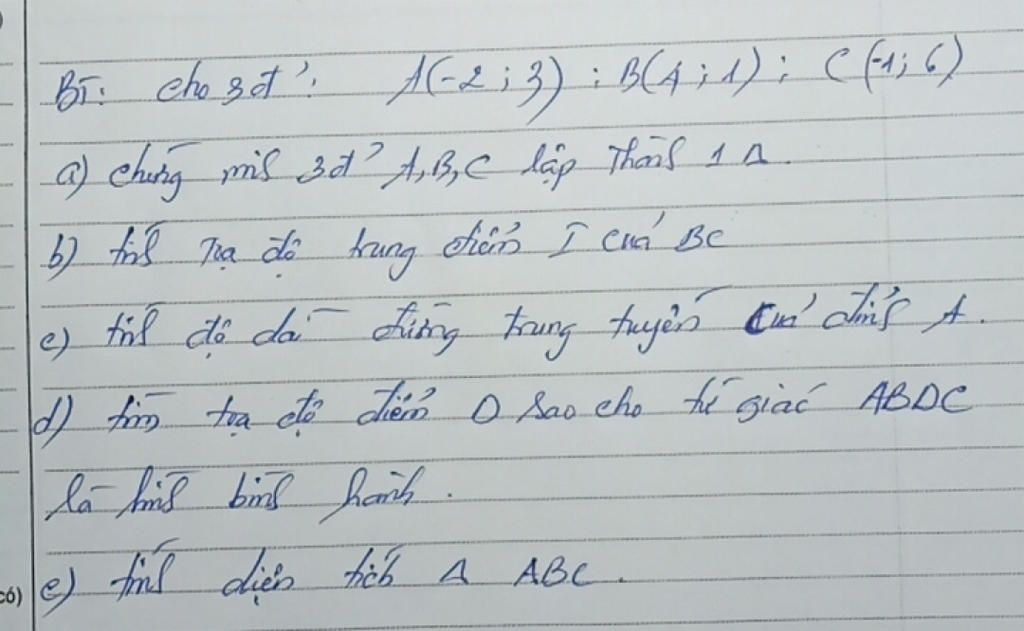 B1: cho 3đ': A(-2; 3); B(4; 1); C(-1; 6)
a) chứng mih 3đ' A, B, C lập Thành 1 Δ.
b) tính Tọa độ trung điểm I của BC
c) tính độ dài đường trung tuyến của đỉnh A.
d) tìm tọa độ điểm D sao cho tứ giác ABDC
là hình bình hành.
e) tính diện tích Δ ABC.
có)